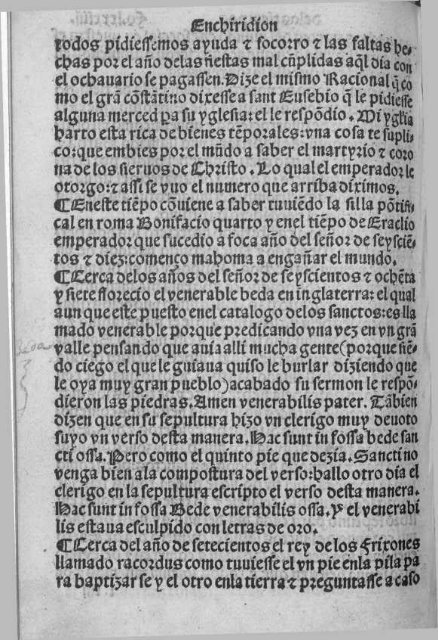 Enchiridion
todos pidiessemos ayuda ⁊ socorro ⁊ las faltas he-
chas por el año delas fiestas mal cũplidas aq̃l dia con
el ochauario se pagassen. Dize el mismo Racional q̃ co
mo el grã cõstãtino dixesse a sant Eusebio q̃ le pidiesse
alguna merced pa su yglesia: el le respõdio. Mi yglia
harto esta rica de bienes tẽporales: vna cosa te supli-
co: que embies por el mũdo a saber el martyrio ⁊ coro
na de los sieruos de Christo. Lo qual el emperador le
otorgo: ⁊ assi se vuo el numero que arriba diximos.
¶Eneste tiẽpo cõuiene a saber tuuiẽdo la silla põtifi-
cal en roma Bonifacio quarto y enel tiẽpo de Eraclio
emperador que sucedio a foca año del señor de seyscię-
tos ⁊ diez: començo mahoma a engañar el mundo.
¶Cerca delos años del señor de seyscientos ⁊ ochẽta
y siete florecio el venerable beda en inglaterra: el qual
aun que este puesto enel catalogo delos sanctos: es lla
mado venerable porque predicando vna vez en vn grã
valle pensando que auia alli mucha gente (porque siẽ-
do ciego el que le guiaua quiso le burlar diziendo que
le oya muy gran pueblo) acabado su sermon le respõ-
dieron las piedras. Amen venerabilis pater. Tãbien
dizen que en su sepultura hizo vn clerigo muy deuoto
suyo vn verso desta manera. Hac sunt in fossa bede san
cti ossa. Pero como el quinto pie que dezia. Sancti no
venga bien ala compostura del verso: hallo otro dia el
clerigo en la sepultura escripto el verso desta manera.
Hac sunt in fossa Bede venerabilis ossa. Y el venerabi
lis estaua esculpido con letras de oro.
¶Cerca del año de setecientos el rey de los Frixones
llamado racordus como tuuiesse el vn pie enla pila pa
ra baptizar se y el otro enla tierra ⁊ preguntasse a caso